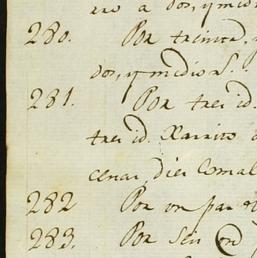 a dos, y medio
280. Por treinta, y
dos, y medio r.s
281. Por tres id.
tres id. Xarrito
cenar, dies Comal
282 Por un par de
283. Por Seis on